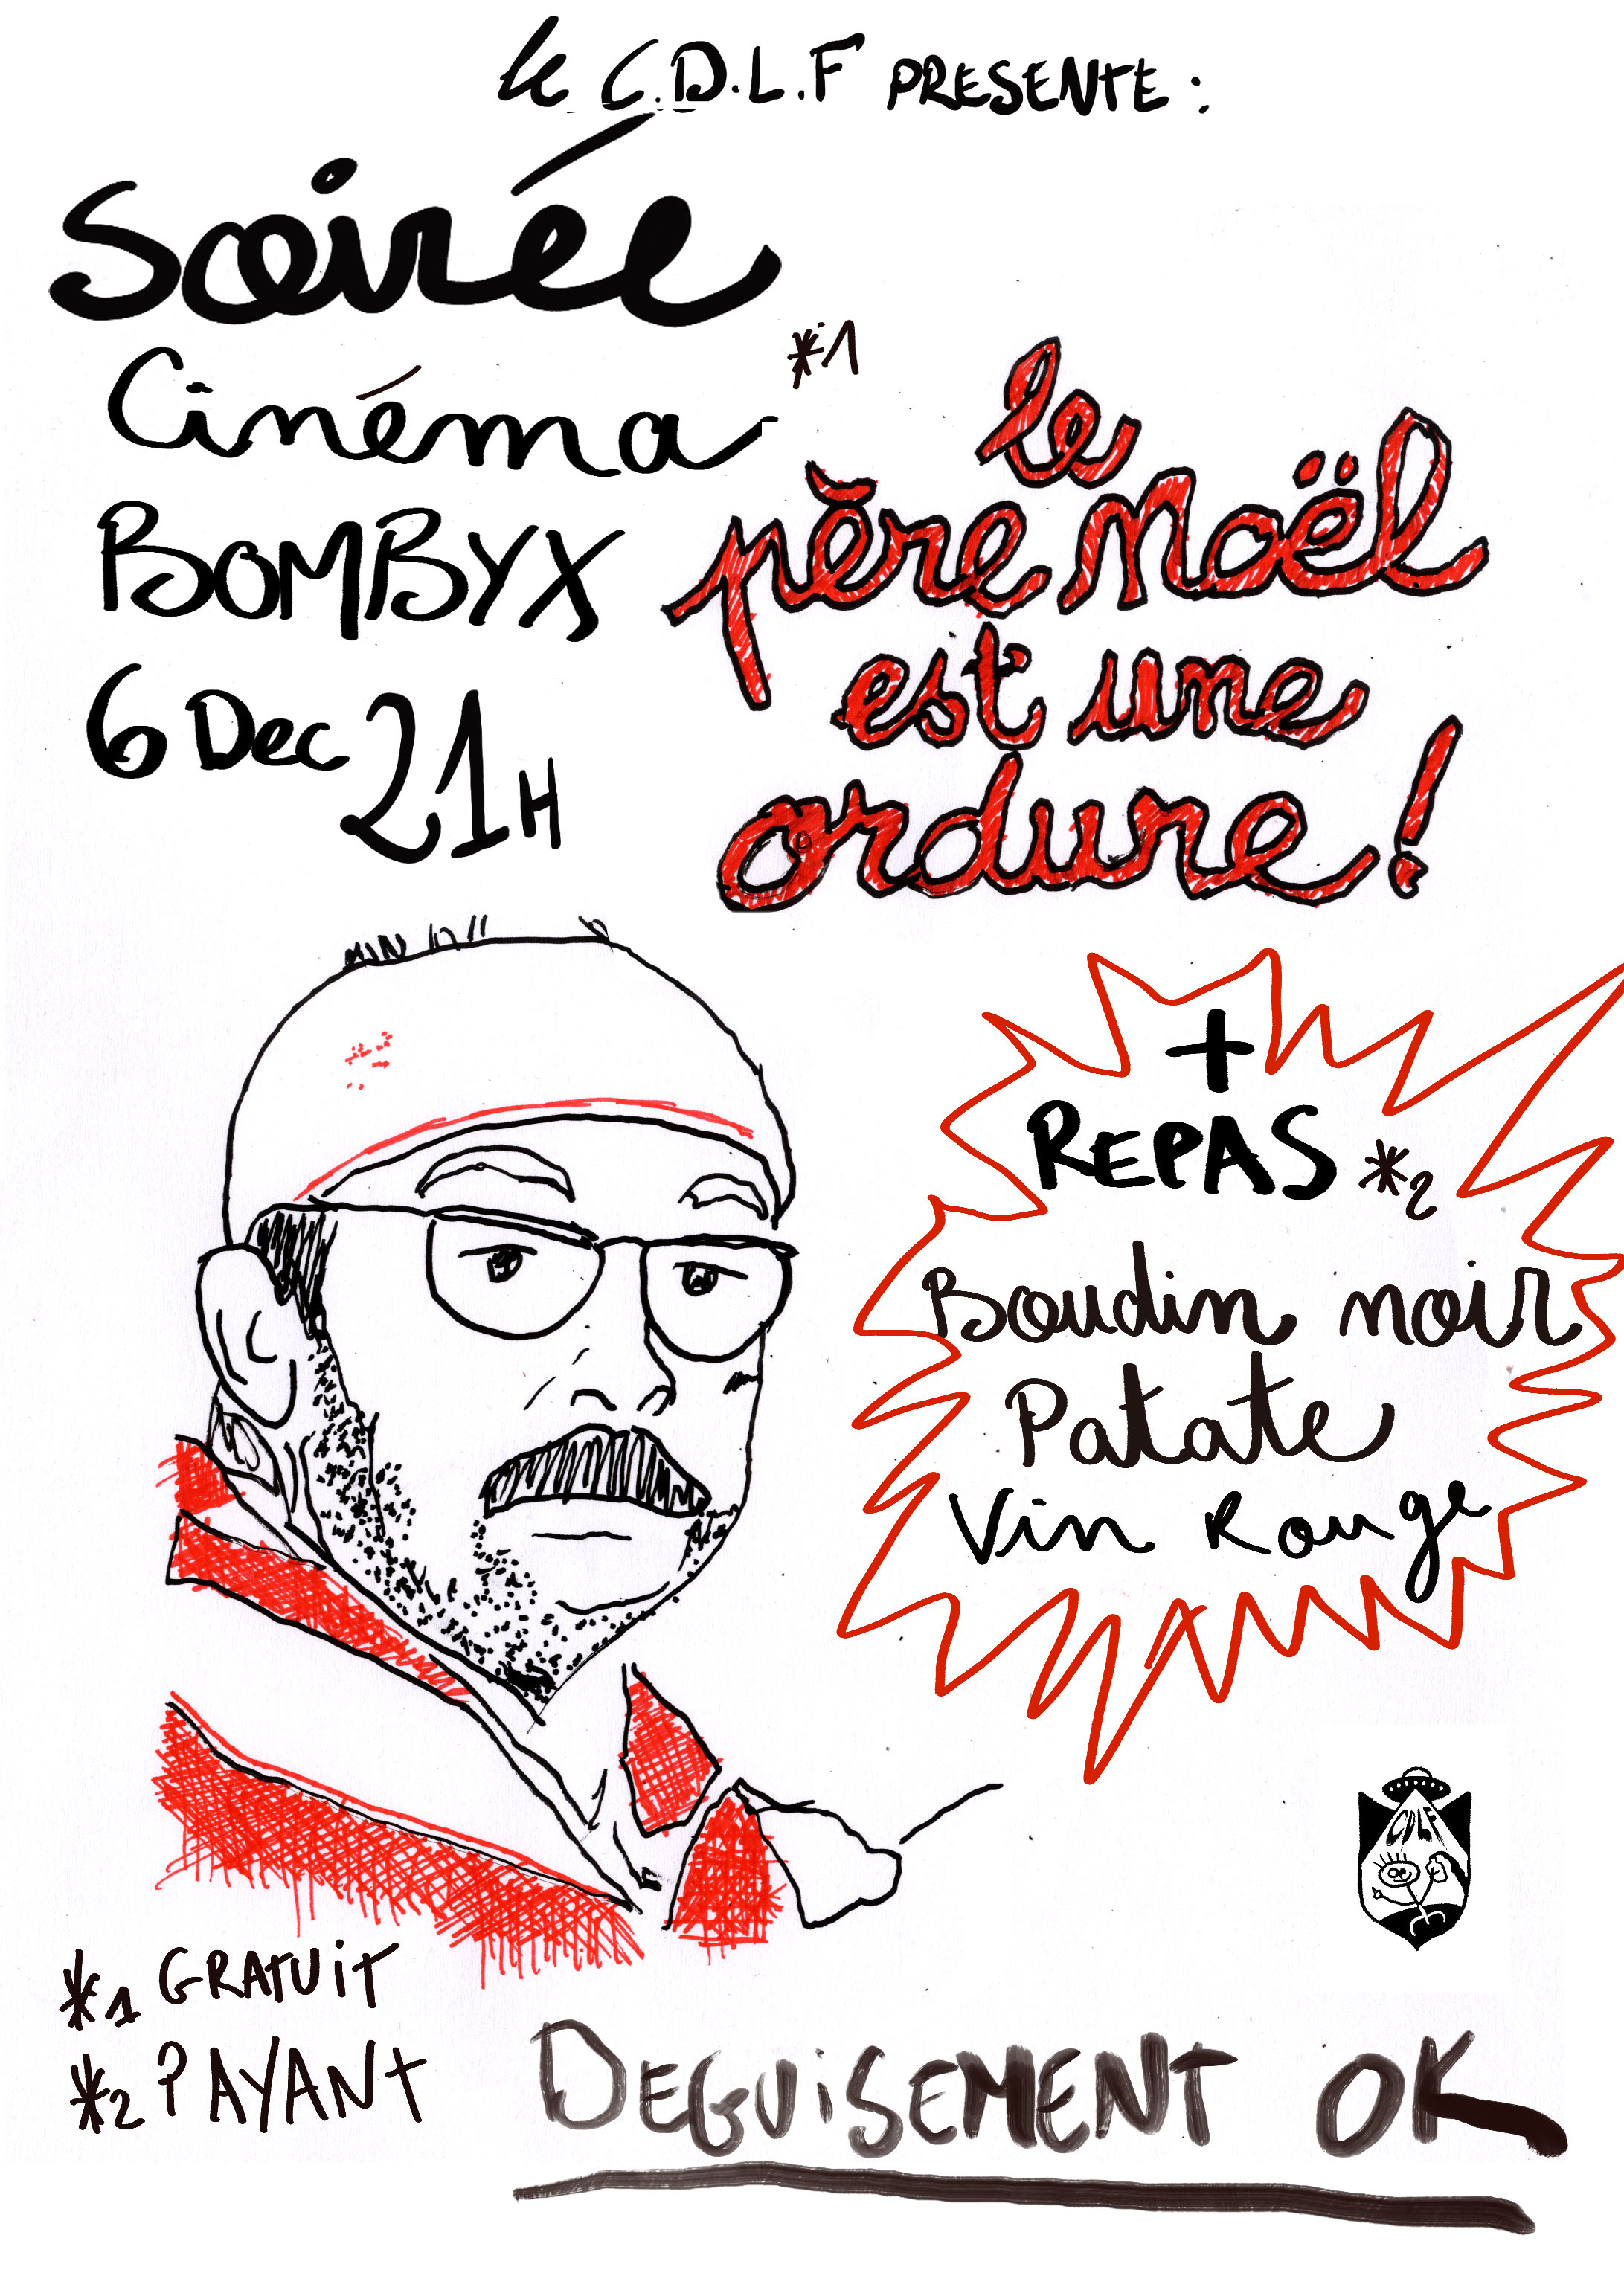 le C.D.L.F PRESENTE :
Soirée
Cinéma *1
BOMBYX
6 Dec 21H
le
père Noël
est une
ordure !
+
REPAS *2
Boudin noir
Patate
Vin Rouge
CDLF
*1 GRATUiT
*2 PAYANT
DEGUiSEMENT OK